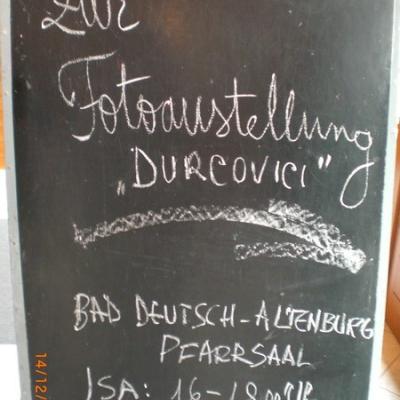 Zur
Fotoaustellung
„DURCOVICI"
BAD DEUTSCH-ALTENBURG
PFARRSAAL
SA: 16-18 00 UHR
14/12/